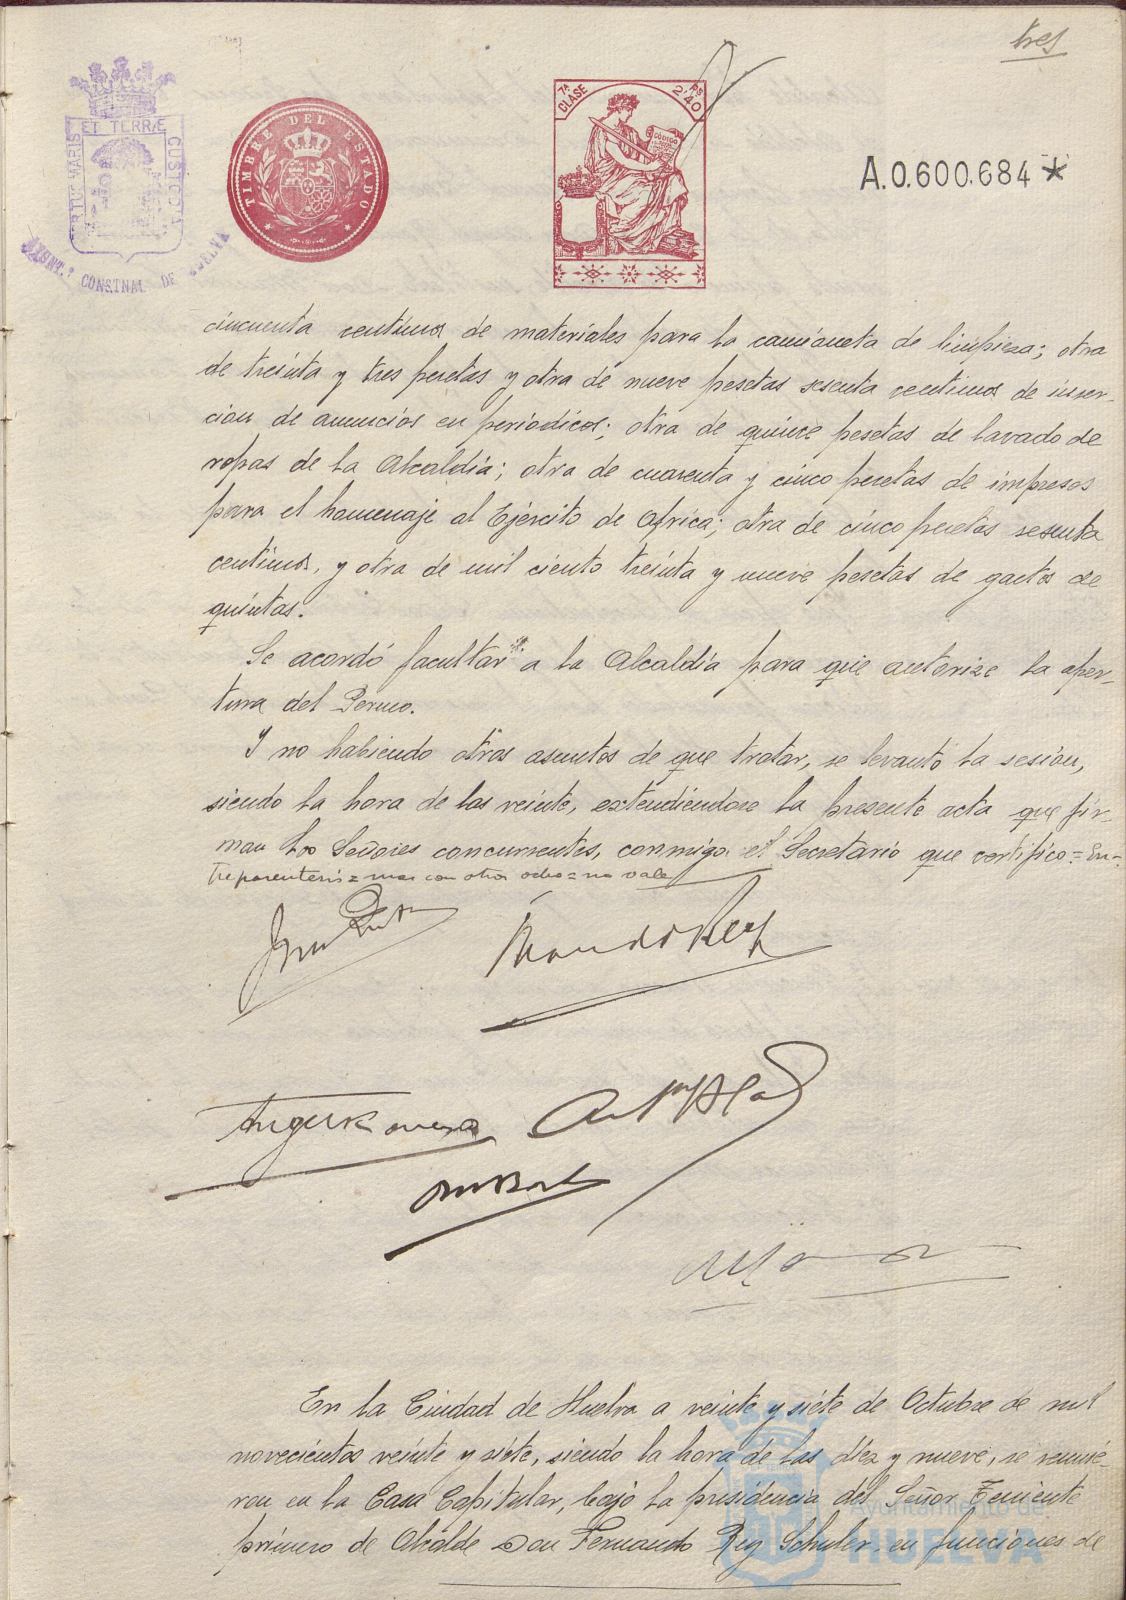 tres
ET TERRÆ
CUSTODIA
AYUNT.º CONSTNAL DE HUELVA
TIMBRE DEL ESTADO
7ª CLASE
PS 2'40
CODIGO
A.0.600.684 *
cincuenta centimos de materiales para la camioneta de limpieza; otra
de treinta y tres pesetas y otra de nueve pesetas sesenta centimos de inser-
cion de anuncios en periódicos; otra de quince pesetas de lavado de
ropas de la Alcaldía; otra de cuarenta y cinco pesetas de impresos
para el homenaje al Ejército de Africa; otra de cinco pesetas sesenta
centimos, y otra de mil ciento treinta y nueve pesetas de gastos de
quintas.
Se acordó facultar a la Alcaldía para que autorize la aper-
tura del
Y no habiendo otros asuntos de que tratar, se levantó la sesion,
siendo la hora de las veinte, extendiéndose la presente acta que fir-
man los Señores concurrentes, conmigo el Secretario que certifico = En-
treparentesis = mas con otros ocho = no vale
En la Ciudad de Huelva a veinte y siete de Octubre de mil
novecientos veinte y siete, siendo la hora de las diez y nueve, se reunie-
ron en la Casa Capitular, bajo la presidencia del Señor Teniente
primero de Alcalde Don Fernando Rey Schuler, en funciones de
Ayuntamiento de
HUELVA